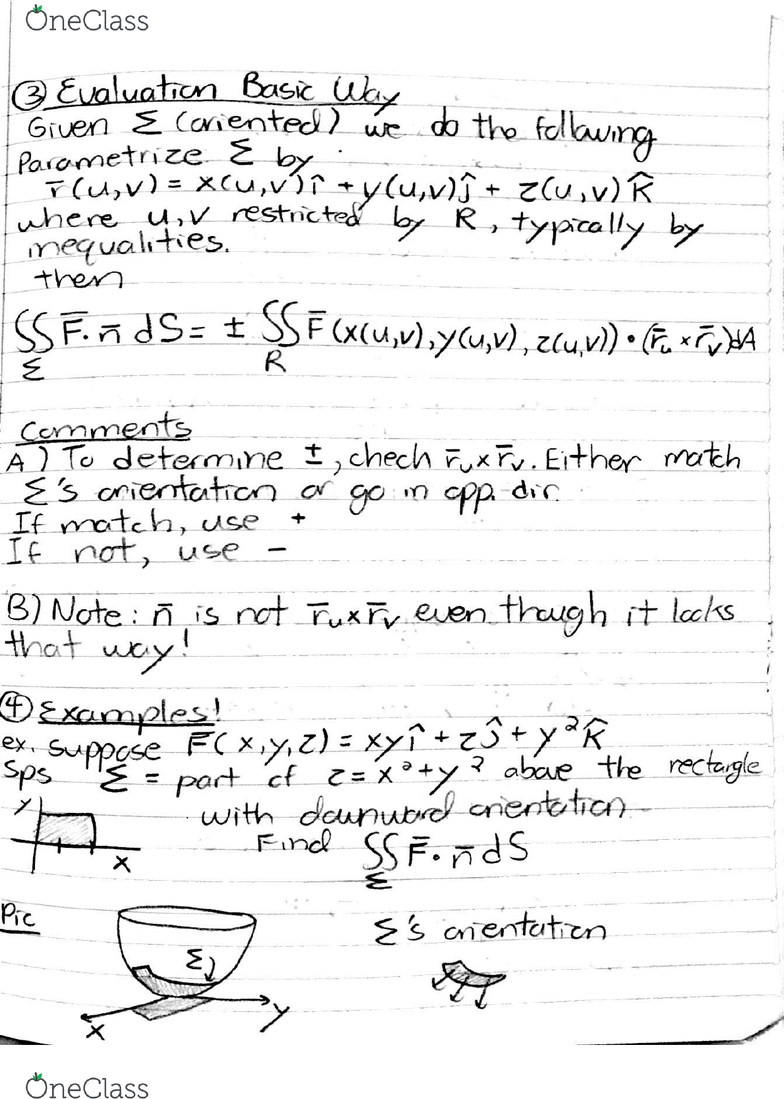 OneClass
③ Evaluation Basic Way
Given Σ (oriented) we do the following
Parametrize Σ by
r̄(u,v) = x(u,v)î + y(u,v)ĵ + z(u,v)k̂
where u,v restricted by R, typically by
inequalities.
then
∬_Σ F̄·n̄ dS = ± ∬_R F̄(x(u,v),y(u,v),z(u,v))•(r̄u×r̄v)dA
Comments
A) To determine ±, chech r̄u×r̄v. Either match
Σ's orientation or go in opp. dir.
If match, use +
If not, use −
B) Note: n̄ is not r̄u×r̄v even though it looks
that way!
④ Examples!
ex. suppose F̄(x,y,z) = xyî + zĵ + y²k̂
Sps Σ = part of z=x²+y² above the rectangle
y with downward orientation
x Find ∬_Σ F̄·n̄ dS
Pic Σ Σ's orientation
x y
OneClass